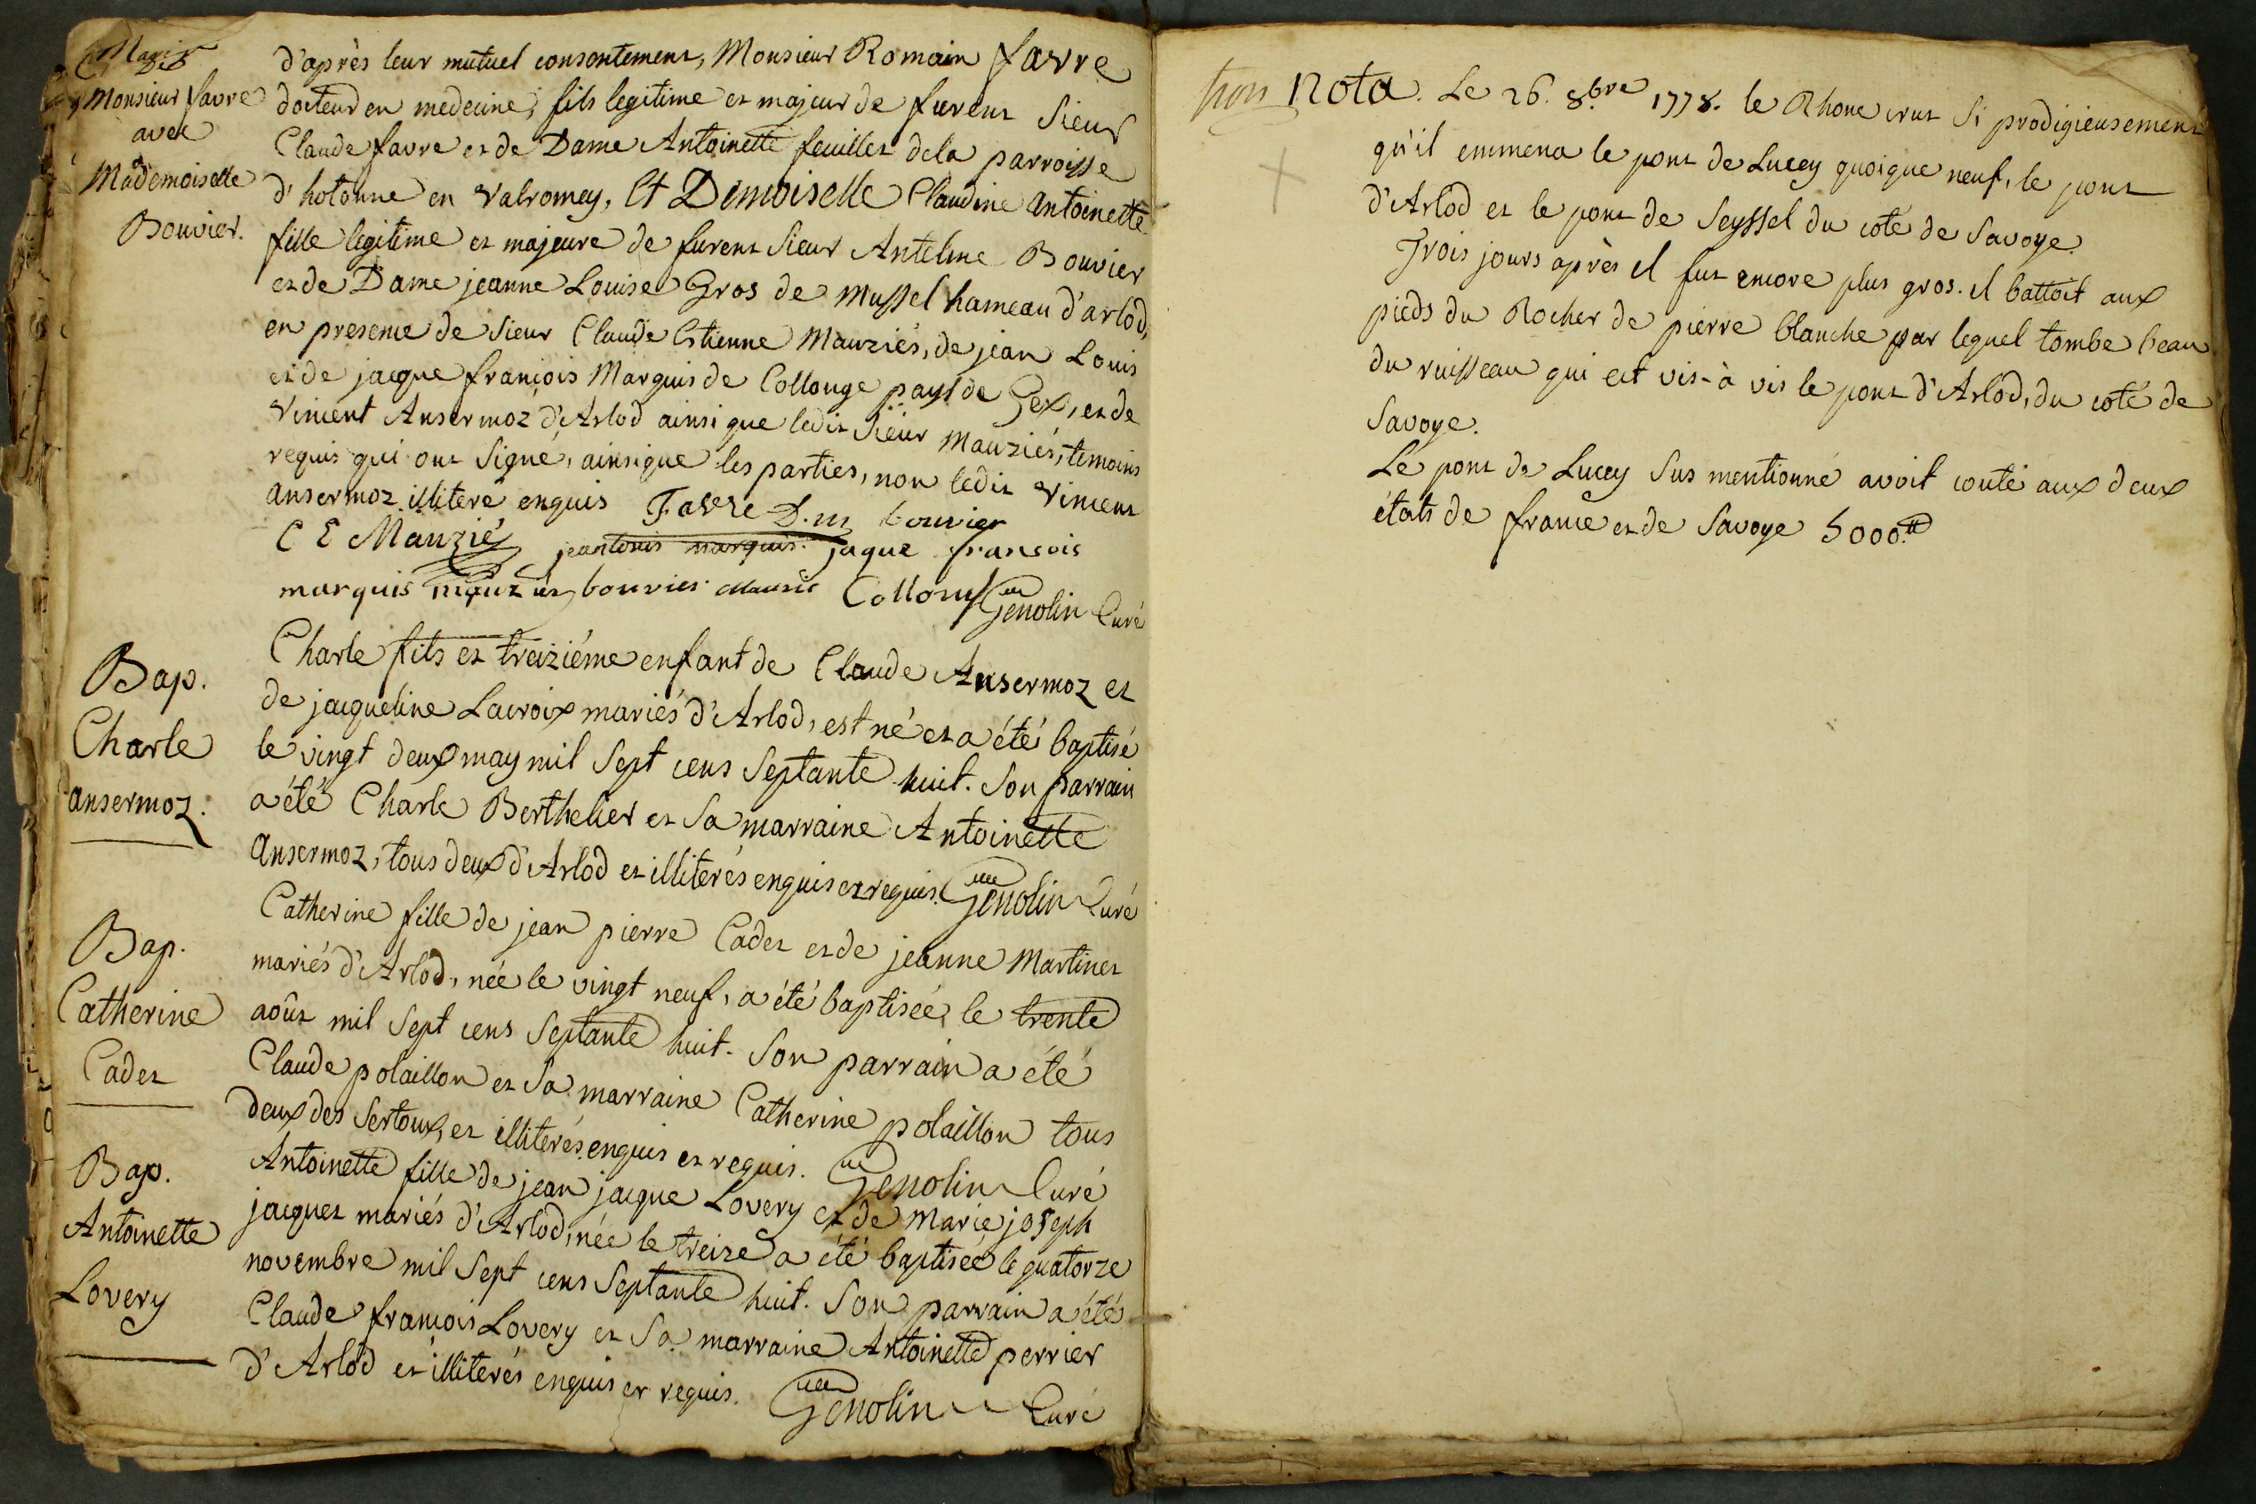 d'après leur mutuel consentement, Monsieur Romain favre
Monsieur favre
docteur en medecine, fils legitime et majeur de furent Sieur
avec
Claude favre et de Dame Antoinette feuillet de la parroisse
Mademoiselle
d'hotonne en Valromey, Et Demoiselle Claudine Antoinette
Bouvier.
fille legitime et majeure de furent Sieur Antelme Bouvier
et de Dame jeanne Louise Gros de Mussel hameau d'arlod,
en presence de Sieur Claude Estienne Mauziés, de jean Louis
et de jacque françois Marquis de Collonge pays de Gex, et de
Vincent Ansermoz d'Arlod ainsi que ledit Sieur Mauziés, temoins
requis qui ont Signé, ainsi que les parties, non ledit Vincent
ansermoz illiteré enquis Favre D. m bouvier
C E Mauzié jean louis marquis. jaque fransois
marquis bouvier Genolin Curé
Bap.
Charle
ansermoz.
Charle fils et treiziéme enfant de Claude Ansermoz et
de jacqueline Lacroix mariés d'Arlod, est né et a été baptisé
le vingt deux may mil Sept cens Septante huit. Son parrain
a été Charle Berthelier et Sa marraine Antoinette
Ansermoz, tous deux d'Arlod et illiterés enquis et requis. Genolin Curé
Bap.
Catherine
Cadet
Catherine fille de jean pierre Cadet et de jeanne Martinet
mariés d'Arlod, née le vingt neuf, a été baptisée le trente
août mil Sept cens Septante huit. Son parrain a été
Claude polaillon et Sa marraine Catherine polaillon tous
deux des Sertoux, et illiterés enquis et requis. Genolin Curé
Bap.
Antoinette
Lovery
Antoinette fille de jean jacque Lovery et de Marie joseph
jacquet mariés d'Arlod, née le treize a été baptisée le quatorze
novembre mil Sept cens Septante huit. Son parrain a été
Claude françois Lovery et Sa marraine Antoinette perrier
d'Arlod et illiterés enquis et requis. Genolin Curé
Nota. Le 26. 8.bre 1778. le Rhone crut Si prodigieusement
qu'il emmena le pont de Lucey quoique neuf, le pont
d'Arlod et le pont de Seyssel du coté de Savoye.
Trois jours après il fut encore plus gros. il battoit aux
pieds du Rocher de pierre blanche par lequel tombe l'eau
du ruisseau qui est vis-à vis le pont d'Arlod, du coté de
Savoye.
Le pont de Lucey Sus mentionné avoit couté aux deux
états de france et de Savoye 5000.tt